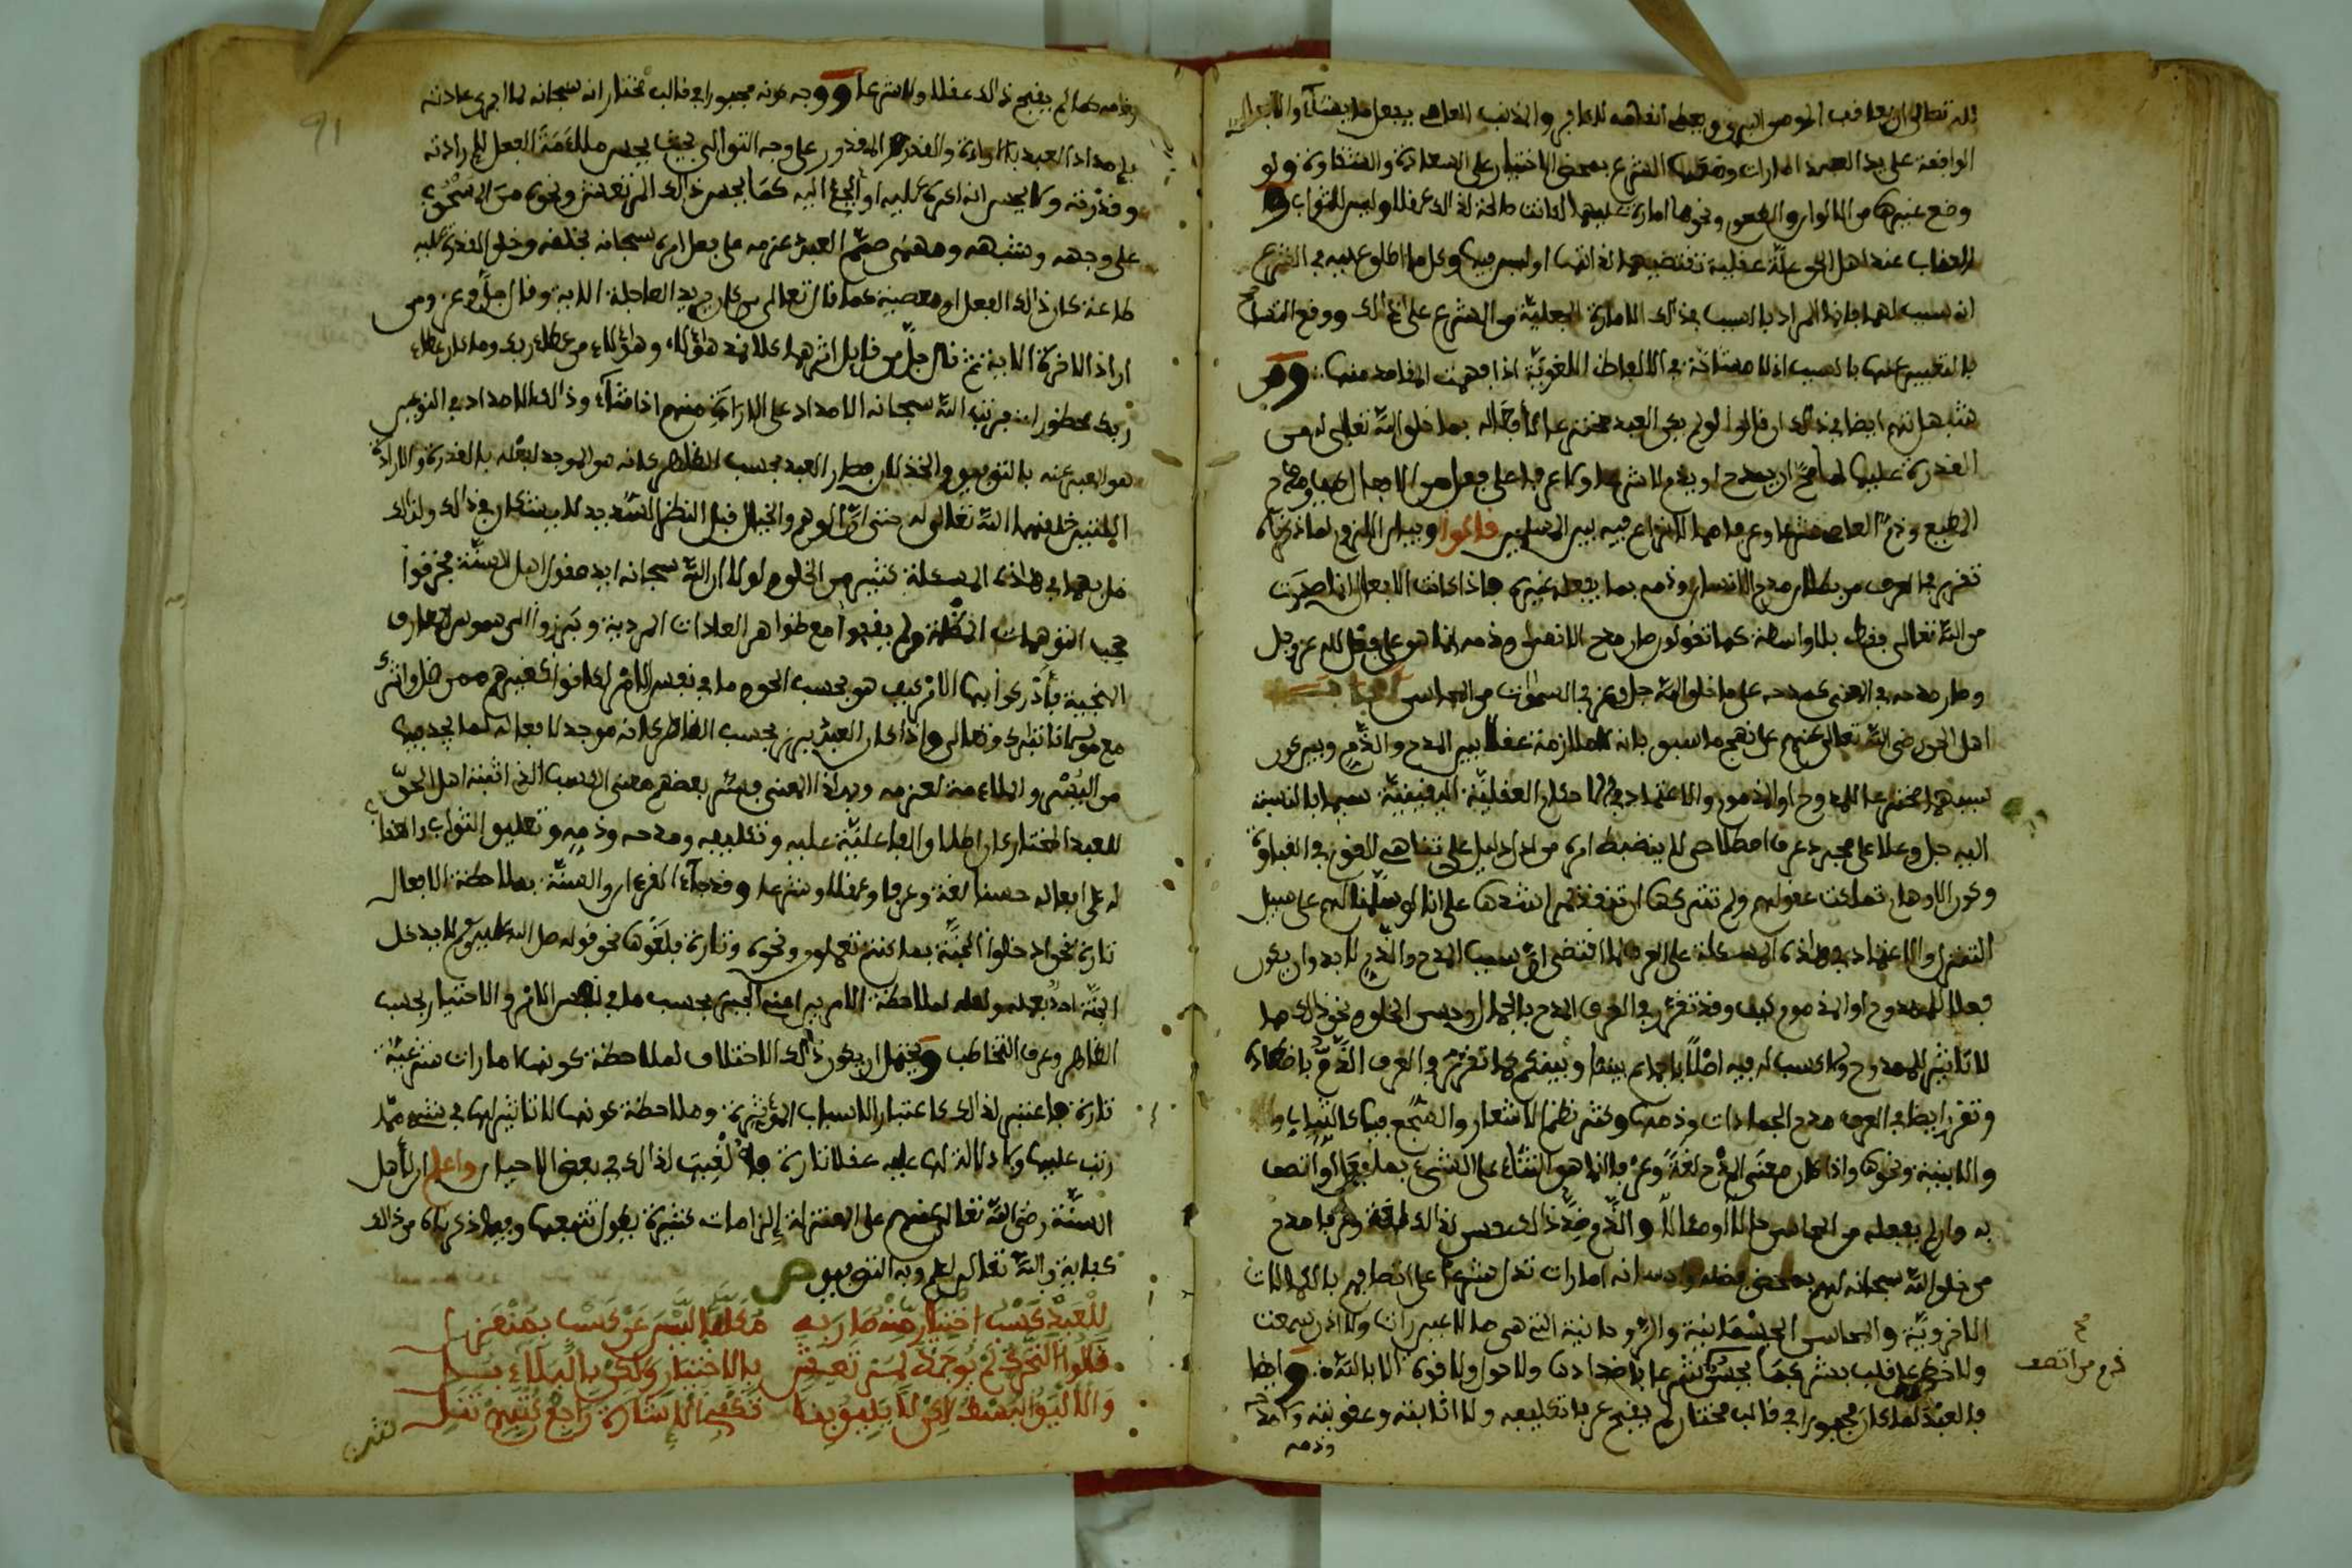 لله تعالى ان يعاقب المومن البر ويعطي النعامه للكافر والمذنب العاصي يفعل ما يشاء
الواقعة على يد العبد امارات وضعها الشرع بمحض الاختيار على السعادة والشقاوة ولو
وضع غيرها من الالوان والطعوم ونحوها امارة عليهما لكانت صالحة لذلك عقلا وليس للثواب ولا
للعقاب عند اهل الحق علة عقلية تقتضيهما لذاتها او ليس فيها وكل ما اطلق عليه في الشرع
انه سبب لهما فانما المراد بالسبب في ذلك الامارة الجعلية من الشرع على ذلك ووقع التسامح
بالتعبير عنها بالسبب اذ لا مشاحة في الالفاظ اللغوية اذا فهمت المقاصد منها ومن
شبهاتهم ايضا في ذلك ان قالوا لو لم يكن العبد مخترعا لافعاله بما خلق الله تعالى له من
القدرة عليها لما صح ان يمدح او يذم لا شرعا ولا عرفا على فعل من الافعال
المطيع وذم العاصي شرعا وعرفا مما لا نزاع فيه بين المسلمين قالوا وبيان اللزوم لما ذكرناه
تقرر في العرف من بطلان مدح الانسان وذمه بما يفعله غيره فاذا كانت الافعال انما صدرت
من الله تعالى فقط بلا واسطة كما تقولون صار مدح الانسان وذمه انما هو على فعل الله عز وجل
وصار مدحه في المعنى كمدحه على ما خلق الله جل وعز في السموات من المحاسن
اهل الحق رضي الله تعالى عنهم على نهج ما سبق بانه لا ملازمة عقلا بين المدح والذم وبين كون
سببهما مخترعا للممدوح او المذموم والاعتماد في الاحكام العقلية اليقينية سيما بالنسبة
اليه جل وعلا على مجرد عرف اصطلاحي لا ينضبط امره من ادل دليل على تناهي القوم في الغباوة
وكون الاوهام تملكت عقولهم ولم تتركها ان تنفذ الى رشدها على انا لو سلمنا لهم على سبيل
التنزل والاعتماد في هذه المسئلة على العرف لما اقتضى ان سبب المدح والذم لا بد وان يكون
فعلا للممدوح او المذموم كيف وقد تقرر في العرف المدح بالجمال وحسن الخلق ونحو ذلك مما
لا تاثير للممدوح ولا كسب له فيه اصلا باجماع بيننا وبينكم كما تقرر في العرف الذم باضداد
وتقرر ايضا في العرف مدح الجمادات وذمها وكثر نظم الاشعار والسجع فيها كالثياب
والابنية ونحوها واذا كان معنى المدح لغة وعرفا انما هو الثناء على الشيء بما فعل او اتصف
به وان لم يفعله من المحاسن حالا او مئالا والذم ضد ذلك حسن لذلك لغة وعرفا مدح
من خلق الله سبحانه لهم بمحض فضله واحسانه امارات تدل شرعا على اتصافهم بالكمالات
الاخروية والمحاسن الجسمانية والروحانية التي هي مما لا عين رات ولا اذن سمعت
ولا خطر على قلب بشر كما يحسن شرعا باضدادها ولا حول ولا قوة الا بالله وايضا
فالعبد لما كان مجبورا في قالب مختار لم يقبح عرفا تكليفه ولا اثابته وعقوبته ومدحه
وذمه
وذمه كما لم يقبح ذلك عقلا ولا شرعا ووجه كونه مجبورا في قالب مختار انه سبحانه لما اجرى عادته
بامداد العبد بالارادة والقدرة والمقدور على وجه التوالي بحيث يحس ملاءمة الفعل لارادته
وقدرته ولا يحس انه اكره عليه او الجئ اليه كما يحس ذلك المرتعش ونحوه ممن
على وجهه وشبهه ومهما صمم العبد عزمه على فعل امره سبحانه بخلقه وخلق القدرة عليه
طاعة كان ذلك الفعل او معصية كما قال تعالى من كان يريد العاجلة الاية وقال جل وعز ومن
اراد الاخرة الاية ثم قال جل من قائل اثرهما كلا نمد هؤلاء وهؤلاء من عطاء ربك وما كان عطاء
ربك محظورا فرتب الله سبحانه الامداد على الارادة منهم اذا شاء وذلك الامداد في النوعين
هو المعبر عنه بالتوفيق والخذلان فصار العبد بحسب الظاهر كانه هو الموجد لفعله بالقدرة والارادة
اللتين خلقهما الله تعالى له حتى ان الوهم والخيال قبل النظر السديد لا يشكان في ذلك ولذلك
ضل بهما في هذه المسئلة كثير من الخلق لولا ان الله سبحانه ايد عقول اهل السنة فخرقوا
حجب التوهمات المظلمة ولم يقفوا مع ظواهر العادات المردية وبرزوا الى شموس المعارف
المنجية فادركوا بها الامر كيف هو بحسب الحق وما في نفس الامر لكانوا كغيرهم ممن ضل واشرك
مع مولانا تبارك وتعالى واذا كان العبد يبرز بحسب الظاهر كانه موجد لافعاله لما يجد فيها
من اليسر والملاءمة لعزمه وبهذا المعنى فسر بعضهم معنى الكسب الذي اثبته اهل الحق
للعبد المختار كان اطلاق الفاعلية عليه وتكليفه ومدحه وذمه وتعليق الثواب والعقاب
له على افعاله حسنا لغة وعرفا وعقلا وشرعا وقد جاء القرءان والسنة بملاحظة الافعال
تارة نحو ادخلوا الجنة بما كنتم تعملون ونحوه وتارة بلغوها نحو قوله صلى الله عليه وسلم لا يدخل
الجنة احد بعمله ولعله لملاحظة الامرين اعني الجبر بحسب ما في نفس الامر والاختيار بحسب
الظاهر وعرف التخاطب ويحتمل ان يكون ذلك الاختلاف لملاحظة كونها امارات شرعية
تارة فاعتبر لذلك كاعتبار الاسباب المؤثرة وملاحظة كونها لا تاثير لها في شيء مما
رتب عليها ولا دلالة لها عليه عقلا تارة فالغيت لذلك في بعض الاحيان واعلم ان لاهل
السنة رضي الله تعالى عنهم على المعتزلة الزامات كثيرة يطول تتبعها وفيما ذكرناه من ذلك
كفاية والله تعالى اعلم وبه التوفيق ص